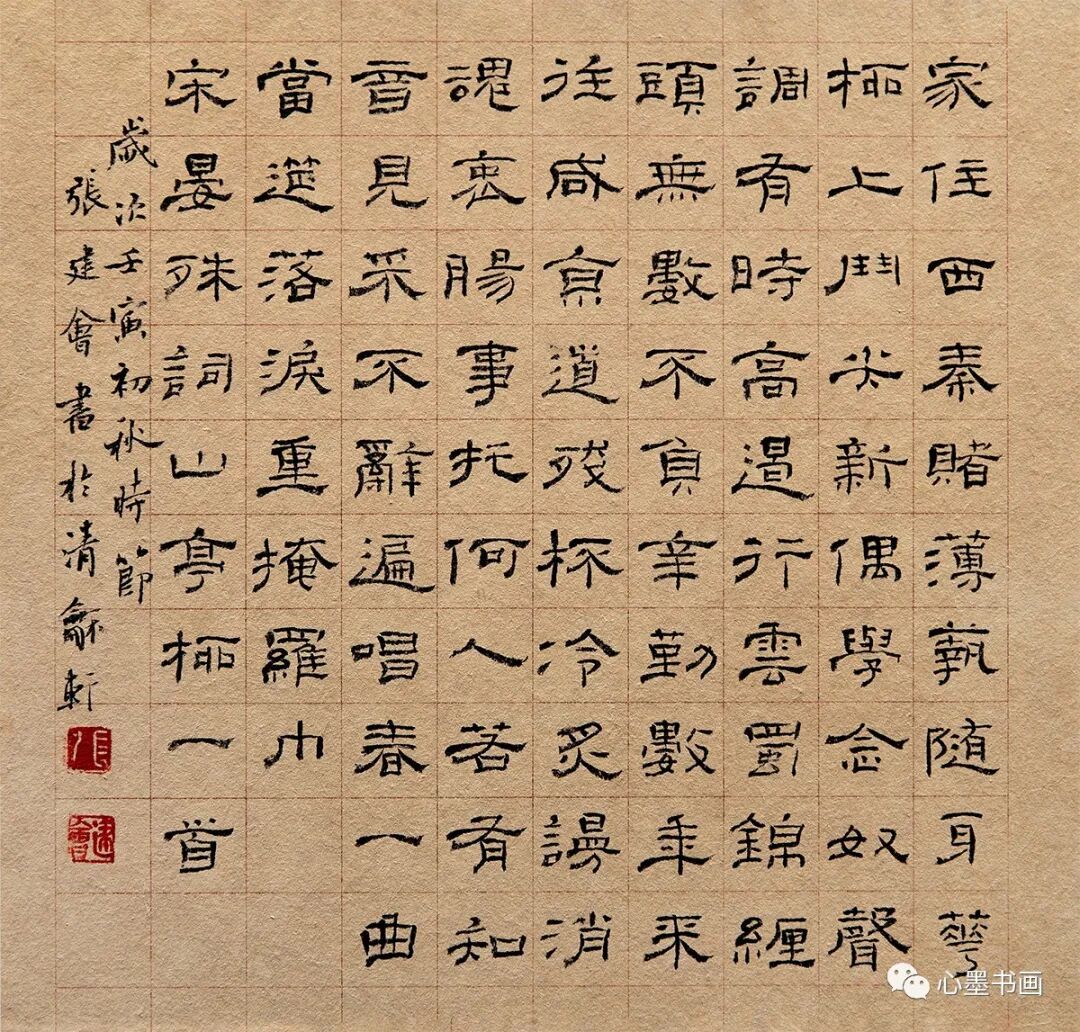 家住西秦賭薄埶随身華
柳上鬥尖新偶學念奴聲
調有時高遏行雲蜀錦纏
頭無數不負辛勤數年来
往咸京道殘杯冷炙謾消
魂衷腸事托何人若有知
音見采不辭遍唱春一曲
當筵落淚重掩羅巾
宋晏殊詞山亭柳一首
歲次壬寅初秋時節
張建會書於清龢軒
張
建會
心墨书画